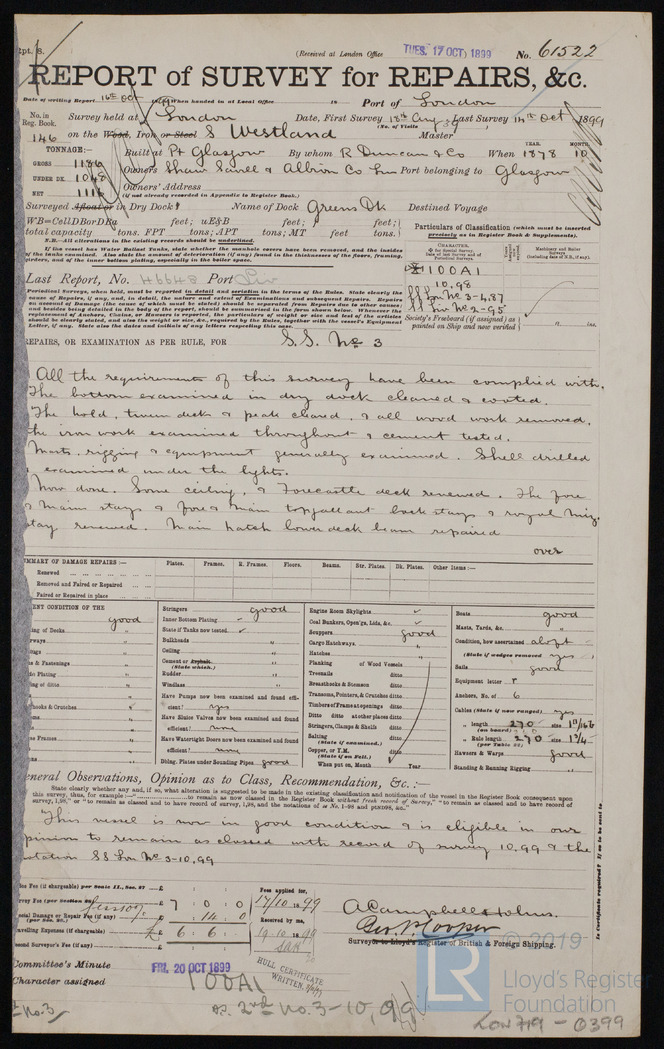 Rpt. 8.
(Received at London Office TUES. 17 OCT 1899
No. 61522
REPORT of SURVEY for REPAIRS, &c.
Date of writing Report 16th Oct When handed in at Local Office 18 Port of London
No. in Reg. Book. Survey held at London Date, First Survey 18th Aug Last Survey 14th Oct 1899
(No. of Visits 39)
146 on the Wood, Iron or Steel S Westland Master
TONNAGE:—
GROSS 1186
UNDER DK. 1048
NET 1116
Built at Pt Glasgow By whom R Duncan & Co When YEAR. 1878 MONTH. 10
Owners Shaw Savill & Albion Co Lim Port belonging to Glasgow
Owners' Address
(if not already recorded in Appendix to Register Book.)
Surveyed Afloat or in Dry Dock? Name of Dock Greens Dk Destined Voyage
WB=CellDBorDBa feet; uE&B feet; feet;
total capacity tons. FPT tons; APT tons; MT feet tons.
N.B.—All alterations in the existing records should be underlined.
If vessel has Water Ballast Tanks, state whether the manhole covers have been removed, and the insides
of the tanks examined. Also state the amount of deterioration (if any) found in the thicknesses of the floors, framing,
girders, and of the inner bottom plating, especially in the boiler space.
Particulars of Classification (which must be inserted
precisely as in Register Book & Supplements).
CHARACTER.
Machinery and Boiler Surveys
(Including date of N.B., if any).
✠100A1
10,98
SS Lon No 3-4,87
SS Liv No 2-95
Society's Freeboard (if assigned) as
painted on Ship and now verified ft. ins.
Last Report, No. 46648 Port Liv
Periodical Surveys, when held, must be reported in detail and seriatim in the terms of the Rules. State clearly the
cause of Repairs, if any, and, in detail, the nature and extent of Examinations and subsequent Repairs. Repairs
on account of Damage (the cause of which must be stated) should be separated from Repairs due to other causes;
and besides being detailed in the body of the report, should be summarised in the form shewn below.
REPAIRS, OR EXAMINATION AS PER RULE, FOR S.S. No 3
All the requirements of this survey have been complied with.
The bottom examined in dry dock cleaned & coated.
The hold, tween deck & peak cleared, & all wood work removed,
the iron work examined throughout & cement tested.
Masts, rigging & equipment generally examined. Shell drilled
& examined under the lights.
Now done. Some ceiling, & Forecastle deck renewed. The fore
& main stays & fore & main topgallant back stays & royal miz.
stay renewed. Main hatch lower deck beam repaired
over
SUMMARY OF DAMAGE REPAIRS:—
Plates. Frames. R. Frames. Floors. Beams. Str. Plates. Dk. Plates. Other Items:—
Renewed
Removed and Faired or Repaired
Faired or Repaired in place
PRESENT CONDITION OF THE
good
Stringers good
Inner Bottom Plating -
State if Tanks now tested ✓
Bulkheads "
Ceiling "
Cement or Asphalt. (State which.) "
Rudder "
Windlass "
Have Pumps now been examined and found efficient? yes
Have Sluice Valves now been examined and found efficient? none
Have Watertight Doors now been examined and found efficient? none
Dblng. Plates under Sounding Pipes good
Engine Room Skylights ✓
Coal Bunkers, Open'gs, Lids, &c. ✓
Scuppers good
Cargo Hatchways "
Hatches "
Planking of Wood Vessels
Treenails ditto
Breasthooks & Stemson ditto
Transoms, Pointers, & Crutches ditto
Timbers of Frame at openings ditto
Ditto ditto at other places ditto
Stringers, Clamps & Shelfs ditto
Salting ditto
(State if examined.)
Copper, or Y.M. ditto
(State if on Felt.)
When put on, Month Year
Boats good
Masts, Yards, &c. "
Condition, how ascertained aloft
(State if wedges removed yes)
Sails good
Equipment letter P
Anchors, No. of 6
Cables (State if now ranged) yes
" length 270 size 1 11/16
(on board)
" Rule length 270 size 1 3/4
(per Table 22)
Hawsers & Warps good
Standing & Running Rigging "
General Observations, Opinion as to Class, Recommendation, &c. :—
State clearly whether any and, if so, what alteration is suggested to be made in the existing classification and notification of the vessel in the Register Book consequent upon
this survey
This vessel is now in good condition & is eligible in our
opinion to remain as classed with record of survey 10,99 & the
notation SS Lon No 3-10,99
Survey Fee (per Section 28) £ 7 : 0 : 0
Special Damage or Repair Fee (if any) : 14 : 0
(per Sec. 28.)
Travelling Expenses (if chargeable) £ 6 : 6 :
Fees applied for,
17/10 1899
Received by me,
19.10.1899
A Campbell Holms.
Geo. P. Cooper
Surveyor to Lloyd's Register of British & Foreign Shipping.
Committee's Minute FRI. 20 OCT 1899
Character assigned 100A1
HULL CERTIFICATE
WRITTEN.
S.S. 2nd No. 3-10,99
Is Certificate required? If so to be sent to
© 2019
LR
Lloyd's Register
Foundation
LON719-0399